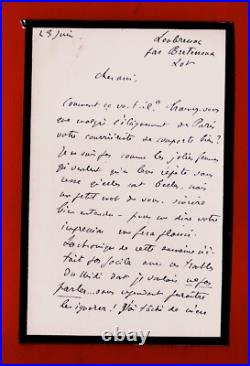 23 Juin
Loubressac
par Bretenoux
Lot
Cher ami,
Comment ça va-t-il? Trouvez-vous
que malgré l'éloignement de Paris
votre
Je ne suis pas comme les jolies femmes
qui veulent qu'on leur répète sans
cesse qu'elles sont belles, mais
un petit mot de vous, sincère
bien entendu — pour me dire votre
impression me fera plaisir.
La chronique de cette semaine n'é-
tait pas facile avec ce
du Midi dont je voulais ne pas
parler... sans cependant paraître
les ignorer! J'ai tâché de
© www.picclick-fr.com